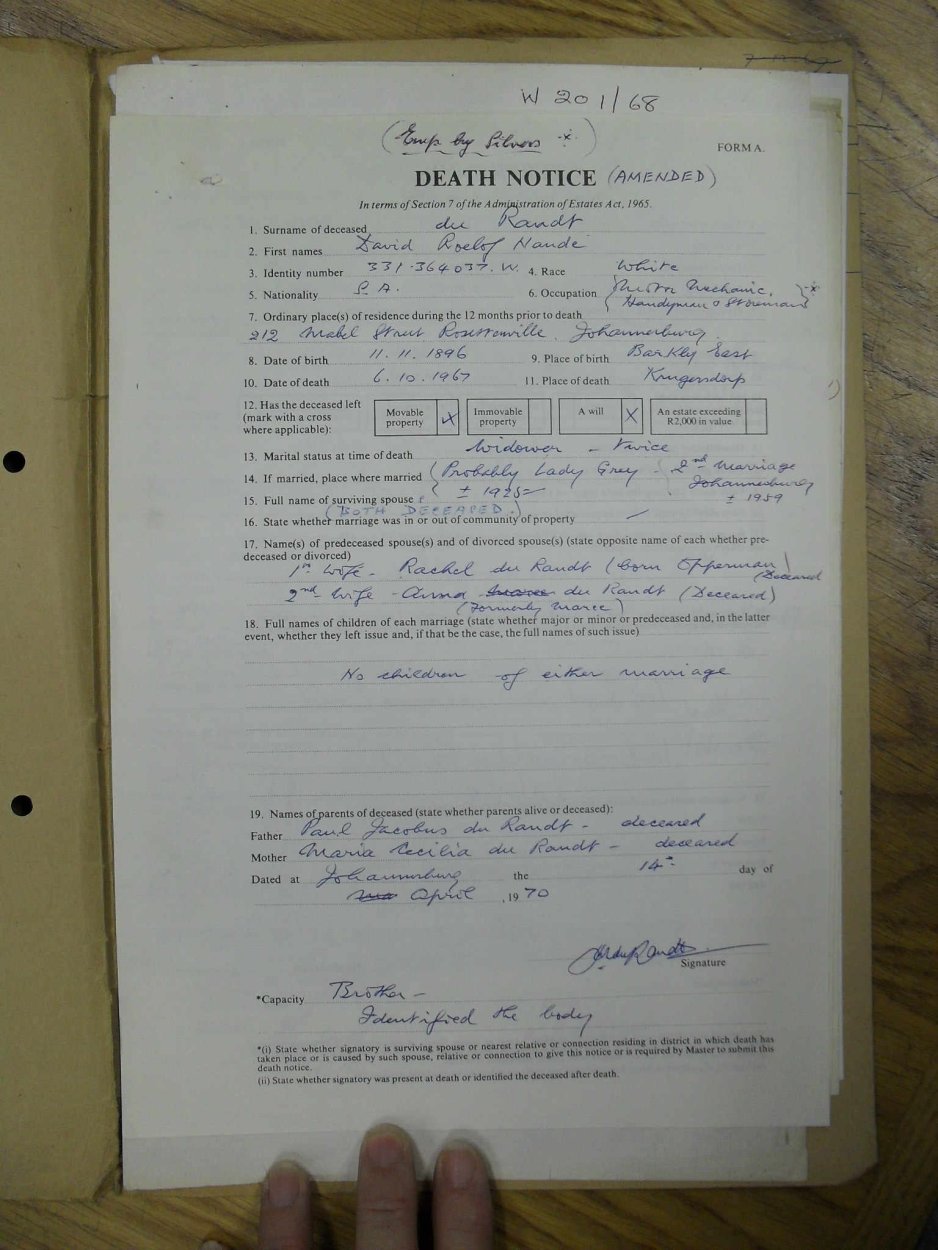 W 201/68
(Emp by Silvers *)
FORM A.
DEATH NOTICE (AMENDED)
In terms of Section 7 of the Administration of Estates Act, 1965.
1. Surname of deceased du Randt
2. First names David Roelof Naude
3. Identity number 331-364037. W. 4. Race White
5. Nationality S.A. 6. Occupation (Motor Mechanic, Handyman & Storeman) *
7. Ordinary place(s) of residence during the 12 months prior to death
212 Mabel Street Rosettenville. Johannesburg
8. Date of birth 11. 11. 1896 9. Place of birth Barkly East
10. Date of death 6. 10. 1967 11. Place of death Krugersdorp
12. Has the deceased left (mark with a cross where applicable): Movable property X Immovable property A will X An estate exceeding R2,000 in value
13. Marital status at time of death Widower - Twice
14. If married, place where married (Probably Lady Grey - 2nd marriage
± 1925 Johannesburg
15. Full name of surviving spouse ± 1959
(BOTH DECEASED.)
16. State whether marriage was in or out of community of property —
17. Name(s) of predeceased spouse(s) and of divorced spouse(s) (state opposite name of each whether pre-
deceased or divorced)
1st Wife - Rachel du Randt (born Opperman) (Deceased
2nd Wife - Anna du Randt (Deceased)
(Formerly Maree)
18. Full names of children of each marriage (state whether major or minor or predeceased and, in the latter
event, whether they left issue and, if that be the case, the full names of such issue)
No children of either marriage
19. Names of parents of deceased (state whether parents alive or deceased):
Father Paul Jacobus du Randt - deceased
Mother Maria Cecilia du Randt - deceased
Dated at Johannesburg the 14th day of
April , 1970
Signature
*Capacity Brother -
Identified the body
*(i) State whether signatory is surviving spouse or nearest relative or connection residing in district in which death has
taken place or is caused by such spouse, relative or connection to give this notice or is required by Master to submit this
death notice.
(ii) State whether signatory was present at death or identified the deceased after death.